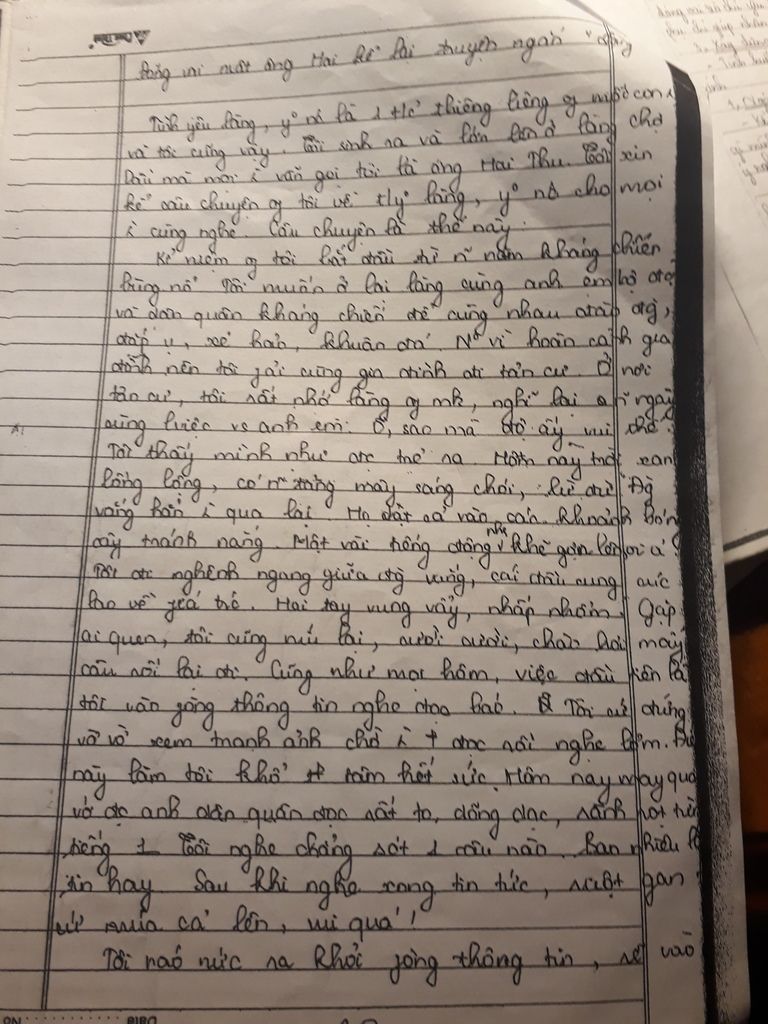 Đóng vai nhân ông Hai kể lại truyện ngắn "Làng
Tình yêu làng, yº nó là 1 thứ thiêng liêng of mỗi con
và tôi cũng vậy. Tôi sinh ra và lớn lên ở làng chợ
Dầu mà mọi i vẫn gọi tôi là ông Hai Thu. Tôi xin
kể câu chuyện of tôi về tỳ làng, yº nó cho mọi
i cùng nghe. Câu chuyện là thế này.
Kỉ niệm of tôi bắt đầu từ n~ năm kháng chiến
bùng nổ. Tôi muốn ở lại làng cùng anh em bộ đội
và dân quân kháng chiến để cùng nhau đắp
đắp ụ, xẻ hào, khuân đá. N° vì hoàn cảnh gia
đình nên tôi fải cùng gia đình đi tản cư. Ở nơi
tản cư, tôi rất nhớ làng of mk, nghĩ lại n~ ngày
cùng việc vs anh em. Ồ, sao mà độ ấy vui thế.
Tôi thấy mình như đc trẻ ra. Hôm nay trời xan
lồng lộng, có n~ tảng mây sáng chói, lừ đừ. Đg
vắng hẳn i qua lại. Họ dạt cả vào các khoảnh bóng
cây tránh nắng. Một vài tiếng động nhỏ khẽ gợn lên
Tôi đi nghênh ngang giữa đg vắng, cái đầu cung cúc
lao về fía trc. Hai tay vung vẩy, nhấp nhổm. Gặp
ai quen, tôi cũng níu lại, cười cười, chào hỏi mấy
câu rồi lại đi. Cũng như mọi hôm, việc đầu tiên là
tôi vào fòng thông tin nghe đọc báo. Tôi cứ đứng
vờ vờ xem tranh ảnh chờ i † đọc rồi nghe lỏm. Điều
này làm tôi khổ tâm hết sức. Hôm nay may quá
vớ đc anh dân quân đọc rất to, dõng dạc, rành rọt từng
tiếng 1. Tôi nghe chẳng sót 1 câu nào. Bao nhiêu là
tin hay. Sau khi nghe xong tin tức, ruột gan
cứ múa cả lên, vui quá!
Tôi náo nức ra khỏi fòng thông tin, rẽ vào